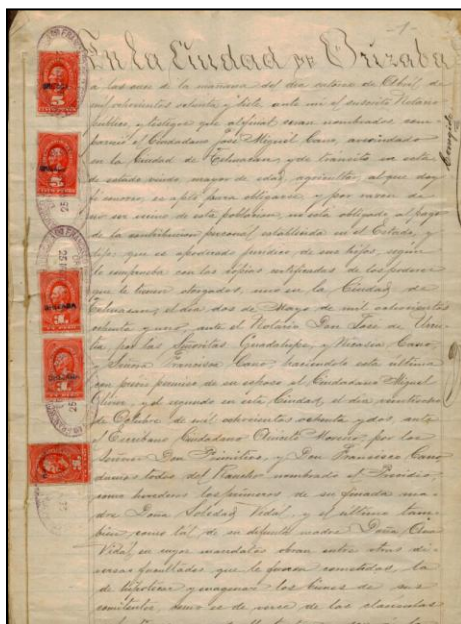 -1-
En la Ciudad de Orizaba
a las once de la mañana del día catorce de Abril de
mil ochocientos ochenta y siete ante mí el suscrito Notario
público, y testigos que al final serán nombrados com-
pareció el Ciudadano José Miguel Cano, avecindado
en la Ciudad de Tehuacan, y de tránsito en esta
de estado viudo, mayor de edad, agricultor, al que doy
fé conozco, es apto para obligarse, y por razón de
no ser vecino de esta población, no está obligado al pago
de la contribución personal establecida en el Estado, y
dijo: que es apoderado jurídico de sus hijos, según
lo comprueba con las copias certificadas de los poderes
que le tienen otorgados, uno en la Ciudad de
Tehuacan, el día dos de Mayo de mil ochocientos
ochenta y uno, ante el Notario Don José de Urru-
tia, por las Señoritas Guadalupe, y Nicasia Cano,
y Señora Francisca Cano, haciéndolo esta última
con previo permiso de su esposo el Ciudadano Miguel
y el segundo en esta Ciudad, el día veinticinco
de Octubre de mil ochocientos ochenta y dos, ante
el Escribano Ciudadano Aniceto Moreno, por los
Señores Don Primitivo, y Don Francisco Cano,
dueños todos del Rancho nombrado el Presidio,
como herederos los primeros de su finada ma-
dre Doña Soledad Vidal, y el último tam-
bién como tal de su difunta madre Doña
Vidal en cuyos mandatos obran entre otras di-
versas facultades que le fueron cometidas, la
de hipotecar y enagenar los bienes de sus
comitentes, como es de verse de las cláusulas